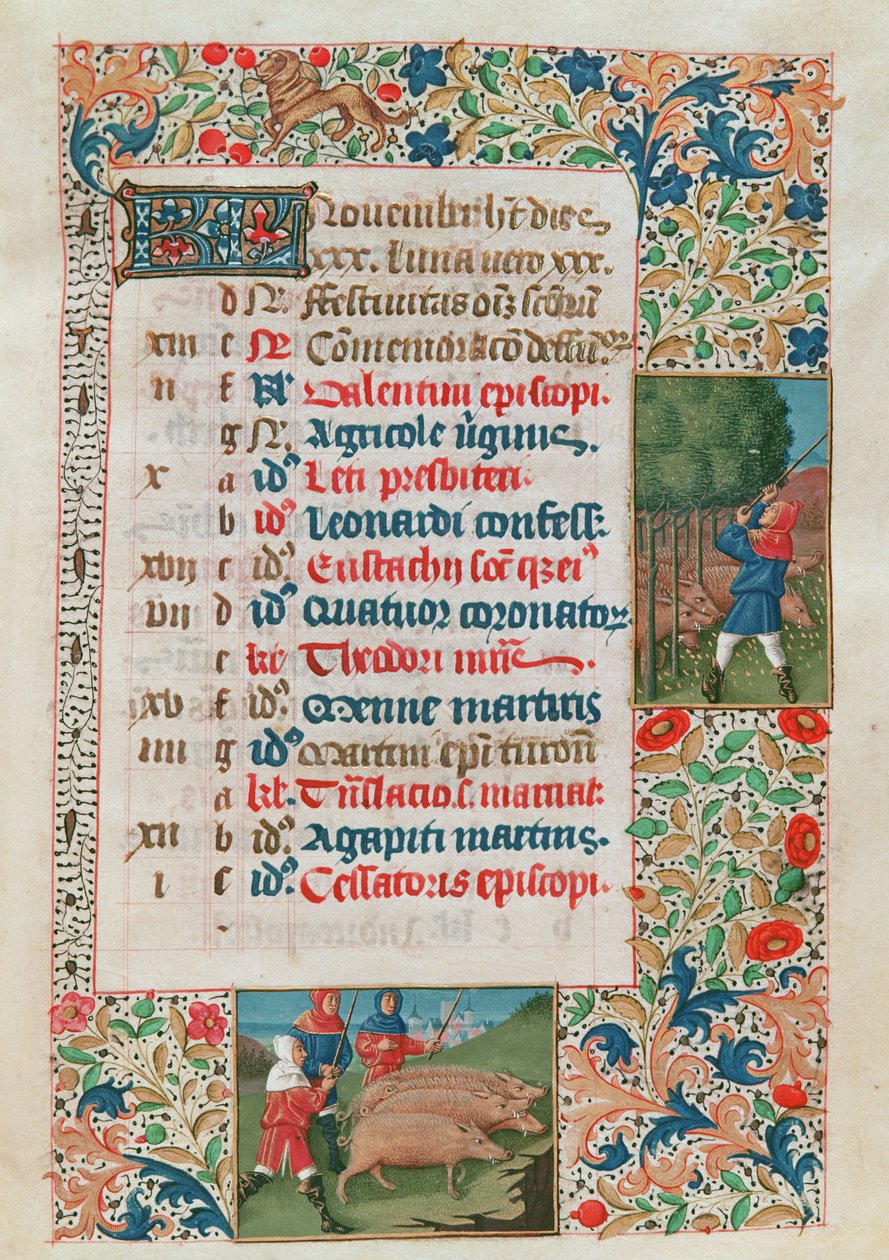 KL Novembri ht dies
xxx. luna vero xxx.
d N. Festivitas oīz sctōrū
xiii e N Cōmemoracō deffūctorꝝ
ii f N Valentini episcopi.
g N. Agricole v̄ginis.
x a idꝰ Leti presbiteri.
b idꝰ Leonardi confess.
xvii c idꝰ Eustachii soc̄ qz eiꝰ
vii d idꝰ Quatuor coronatorꝝ
e kł Theodori mr̄is.
xv f idꝰ Menne martiris
iiii g idꝰ Martini ep̄i turoñ
a kł. Trn̄slacio. s. marcial.
xii b idꝰ. Agapiti martiris.
i c idꝰ. Cessatoris episcopi.